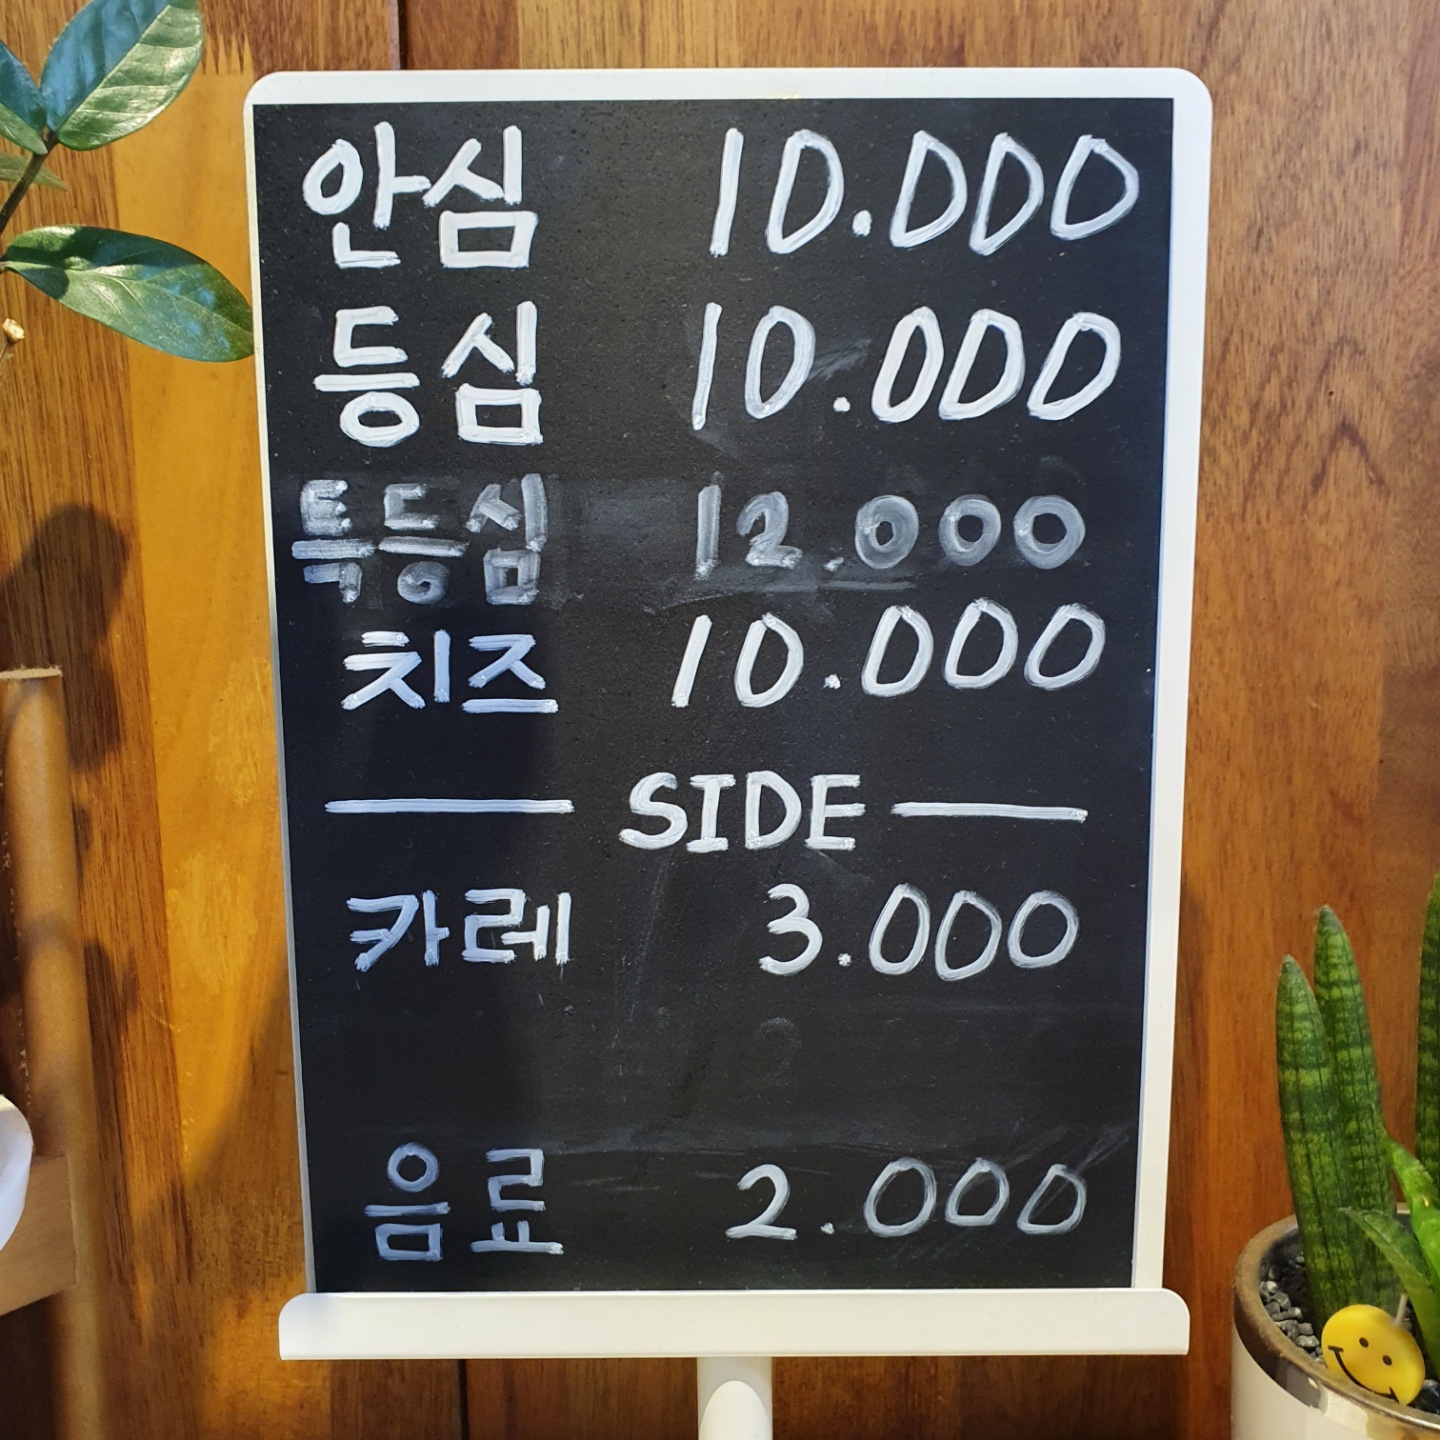 안심 10.000
등심 10.000
특등심 12.000
치즈 10.000
SIDE
카레 3.000
음료 2.000